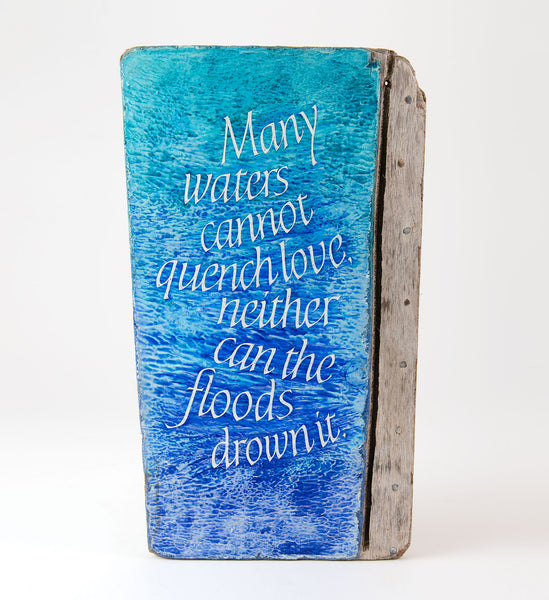 Many
waters
cannot
quench love,
neither
can the
floods
drown it.